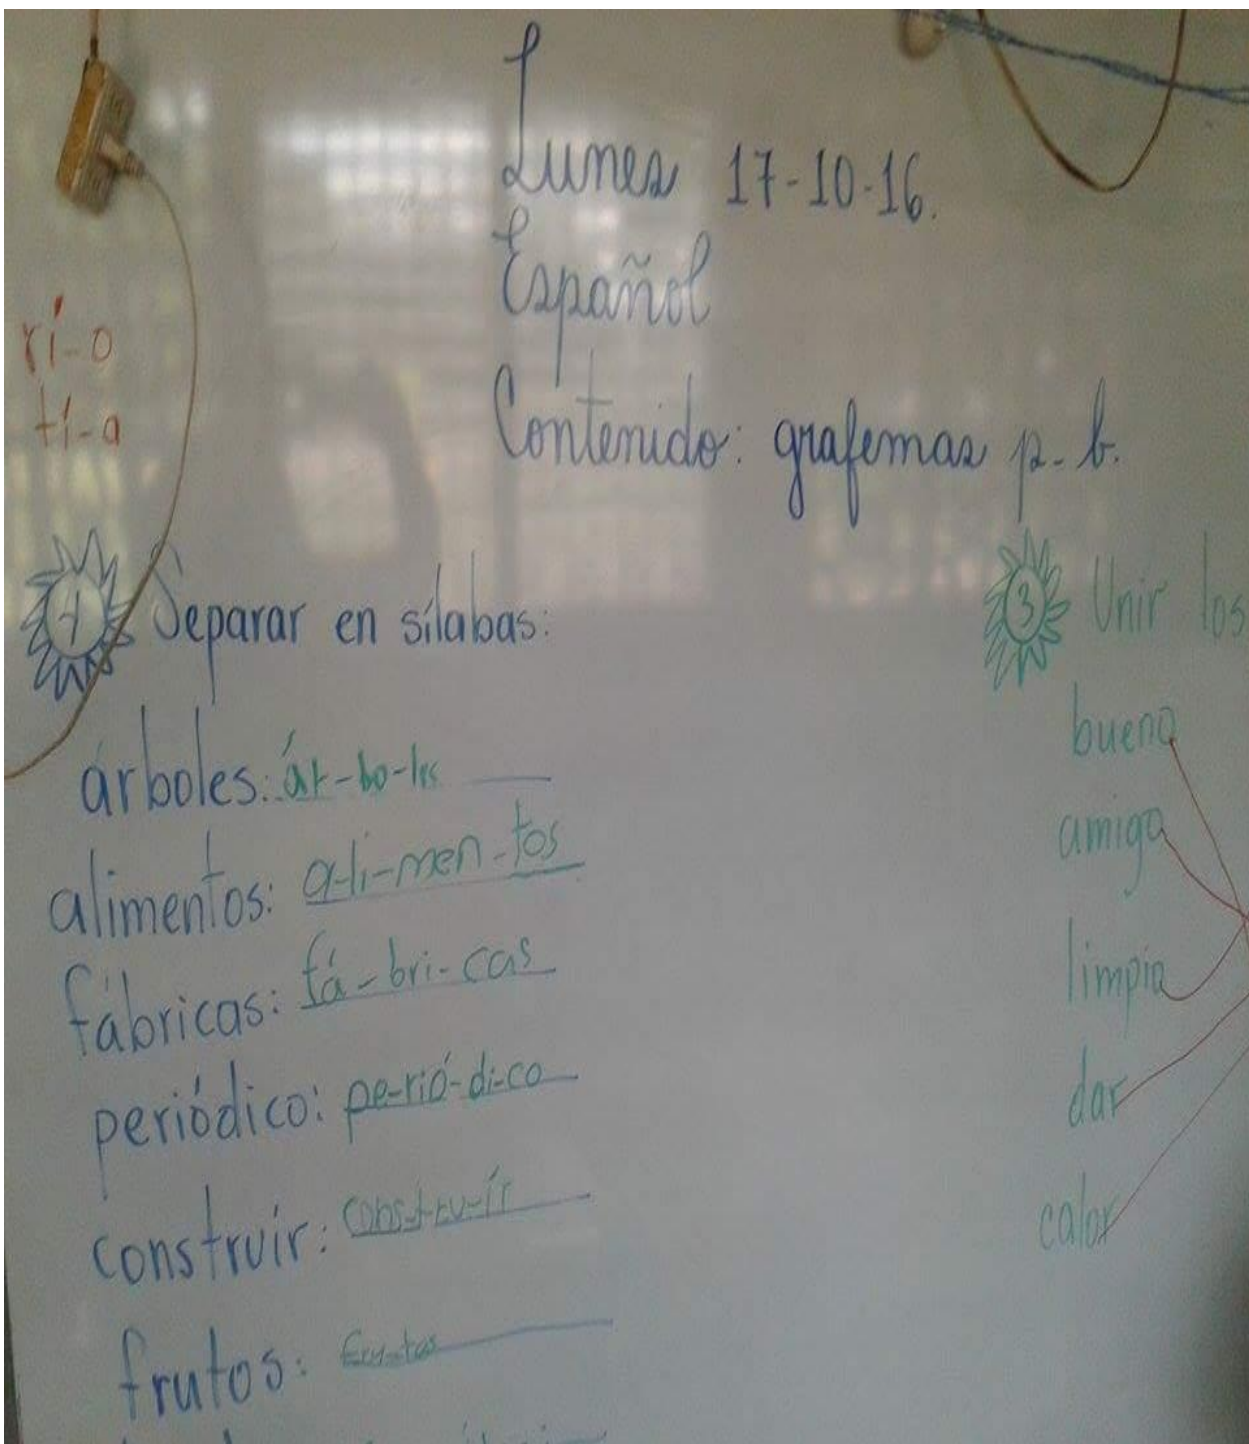 Lunes 17-10-16.
Español
Contenido: grafemas p-b.
rí-o
tí-a
1 Separar en sílabas:
árboles: ár-bo-les
alimentos: a-li-men-tos
fábricas: fá-bri-cas
periódico: pe-rió-di-co
construir: cons-tru-ír
frutos: fru-tos
3 Unir los
bueno
amigo
limpio
dar
calor